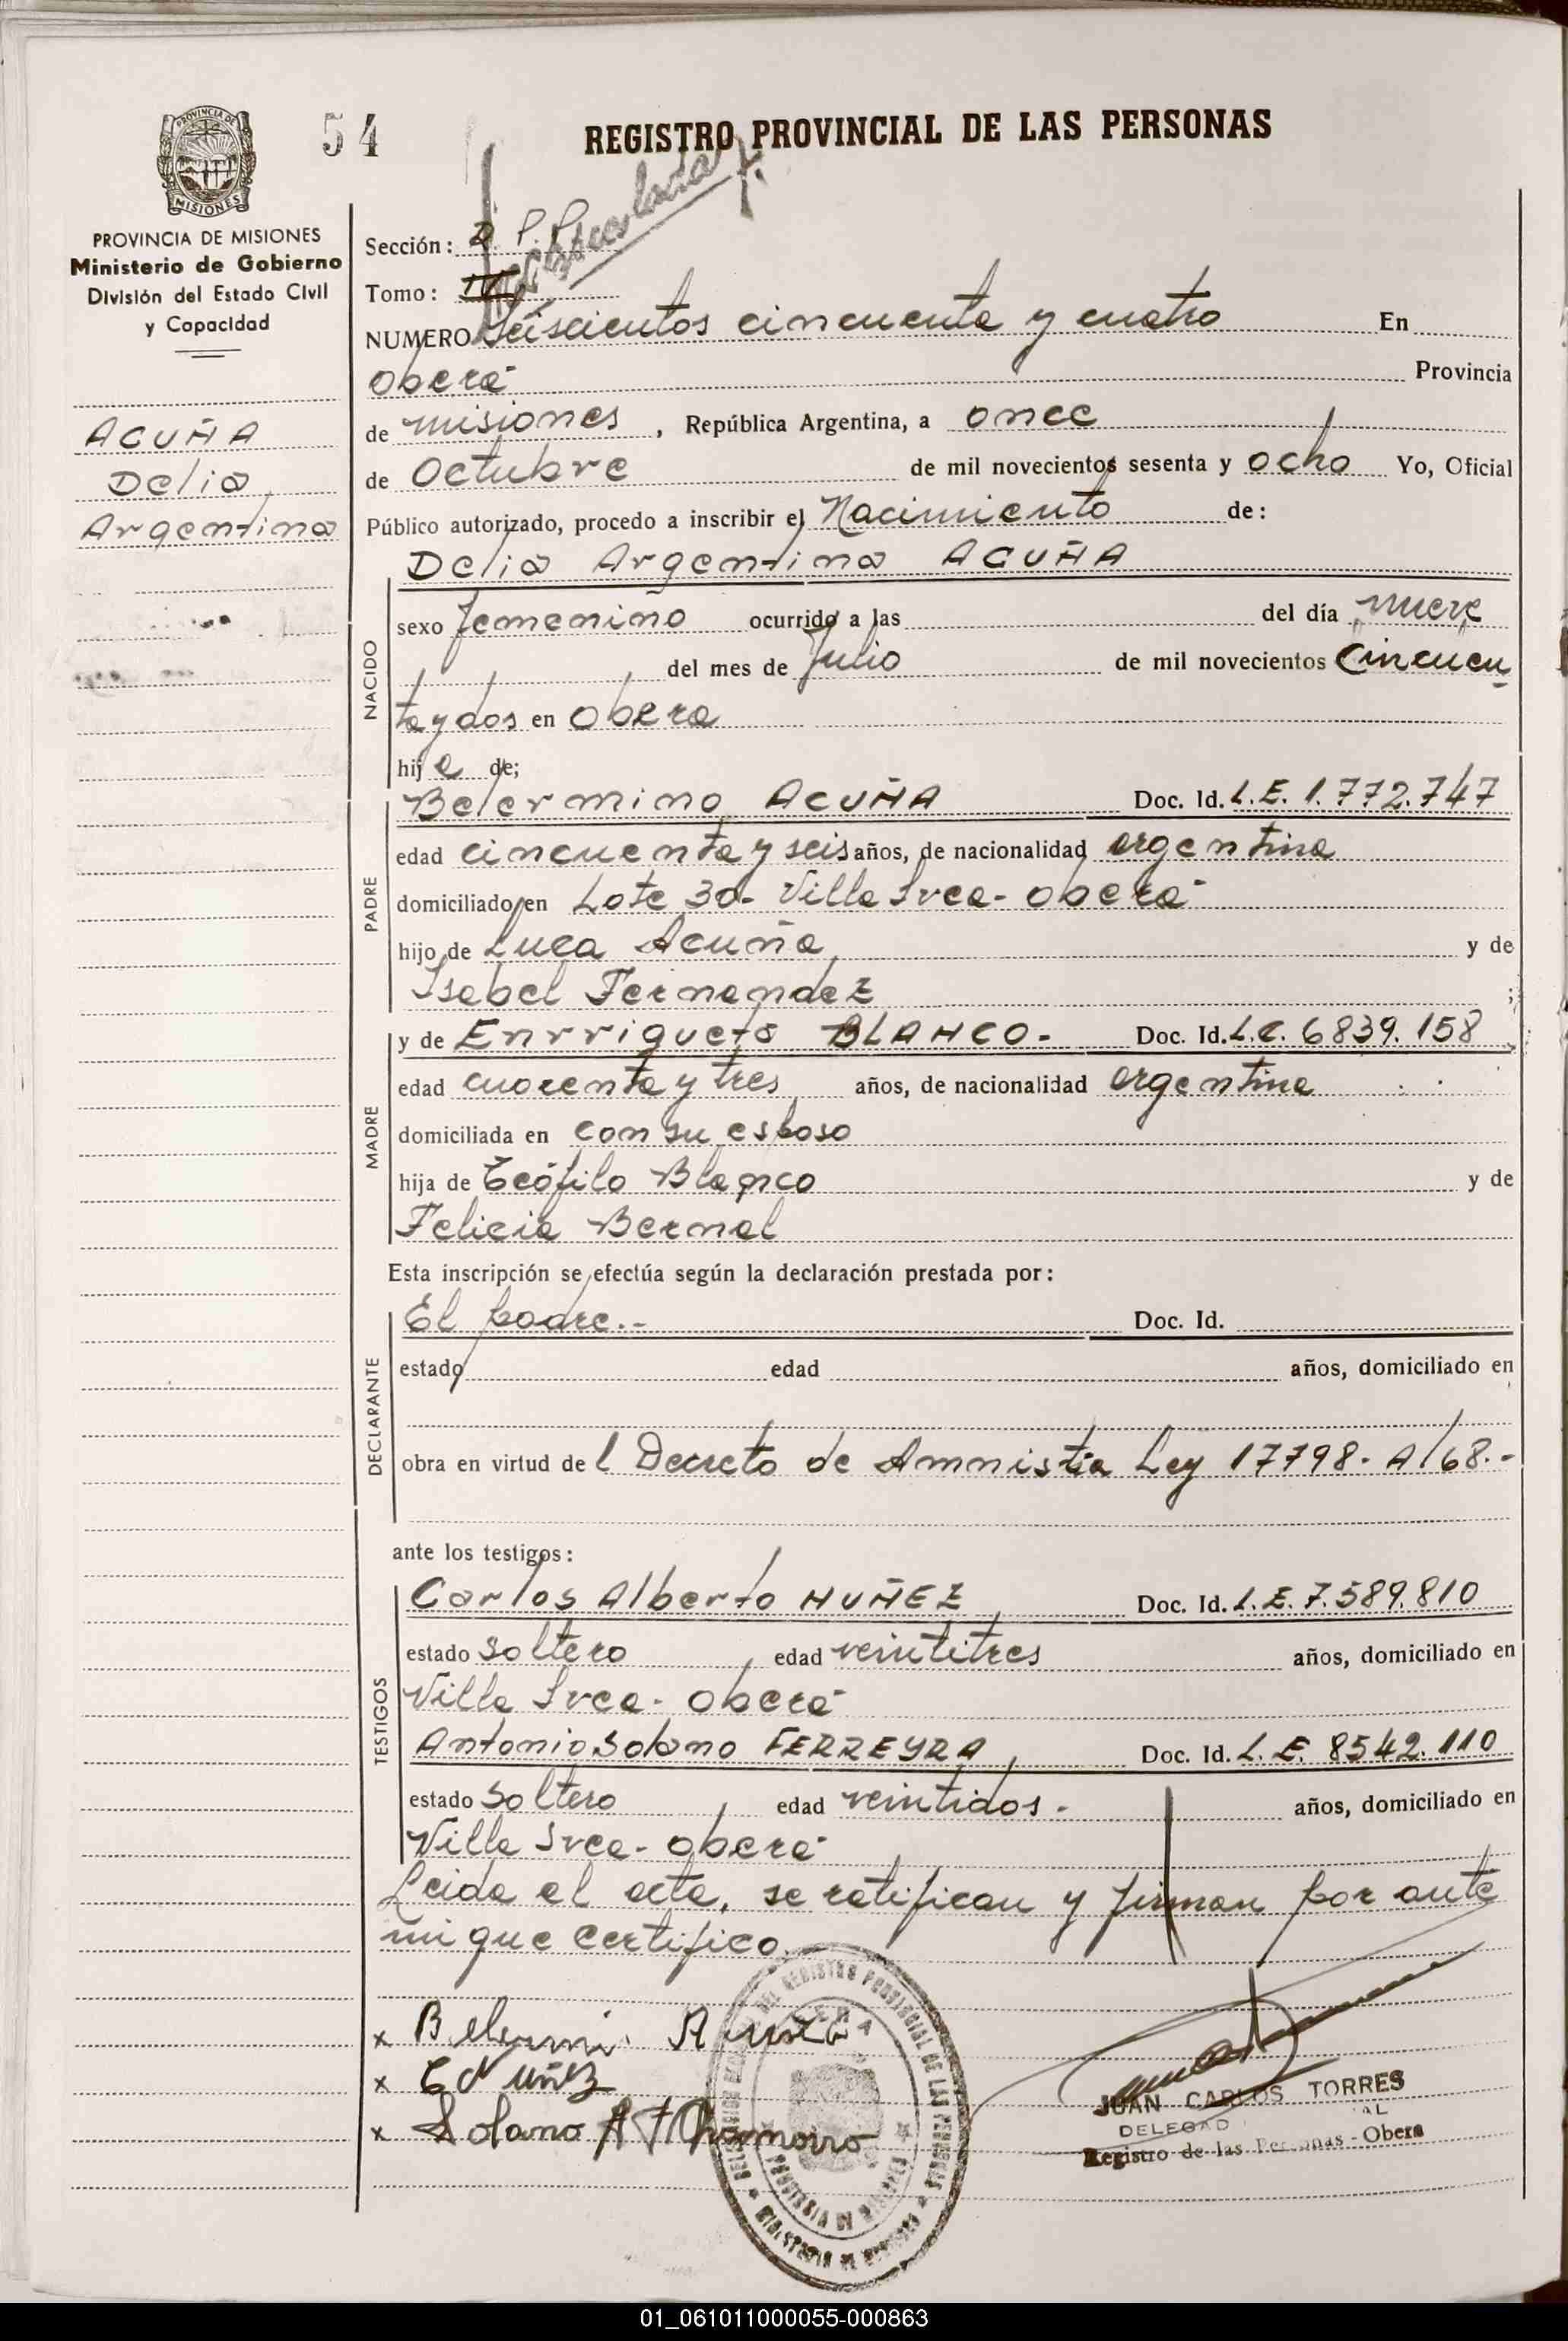 54
REGISTRO PROVINCIAL DE LAS PERSONAS
PROVINCIA DE
MISIONES
PROVINCIA DE MISIONES
Ministerio de Gobierno
División del Estado Civil
y Capacidad
ACUÑA
Delia
Argentina
Sección: D. P. P.
Tomo: IV
NUMERO Seiscientos cincuenta y cuatro En
Oberá Provincia
de Misiones, República Argentina, a once
de Octubre de mil novecientos sesenta y ocho Yo, Oficial
Público autorizado, procedo a inscribir el Nacimiento de:
Delia Argentina ACUÑA
NACIDO
sexo femenino ocurrido a las del día nueve
del mes de Julio de mil novecientos Cincuen
ta y dos en Obera
hija de;
PADRE
Belermino ACUÑA Doc. Id. L.E. 1.772.747
edad cincuenta y seis años, de nacionalidad argentina
domiciliado en Lote 30- Villa Svea- Oberá
hijo de Luca Acuña y de
Isabel Fernandez ;
MADRE
y de Enrriqueta BLANCO.- Doc. Id. L.C. 6839.158
edad cuarenta y tres años, de nacionalidad argentina
domiciliada en con su esposo
hija de Teófilo Blanco y de
Felicia Bernal
Esta inscripción se efectúa según la declaración prestada por:
DECLARANTE
El padre.- Doc. Id.
estado edad años, domiciliado en
obra en virtud del Decreto de Amnistia Ley 17798. A/68.-
ante los testigos:
TESTIGOS
Carlos Alberto NUÑEZ, Doc. Id. L.E. 7.589.810
estado soltero, edad veintitres años, domiciliado en
Villa Svea- Oberá
Antonio Solano FERREYRA, Doc. Id. L.E. 8542.110
estado soltero, edad veintidos.- años, domiciliado en
Villa Svea- Oberá
Leida el acta, se ratifican y firman por ante
mi que certifico.
x
x
x Solano A F Chamorro
JUAN CARLOS TORRES
Registro de las Personas - Obera
01_061011000055-000863